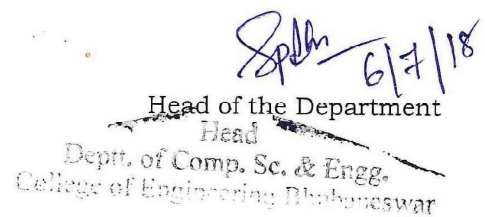 6/7/18
Head of the Department
Head
Deptt. of Comp. Sc. & Engg.
College of Engineering Bhubaneswar